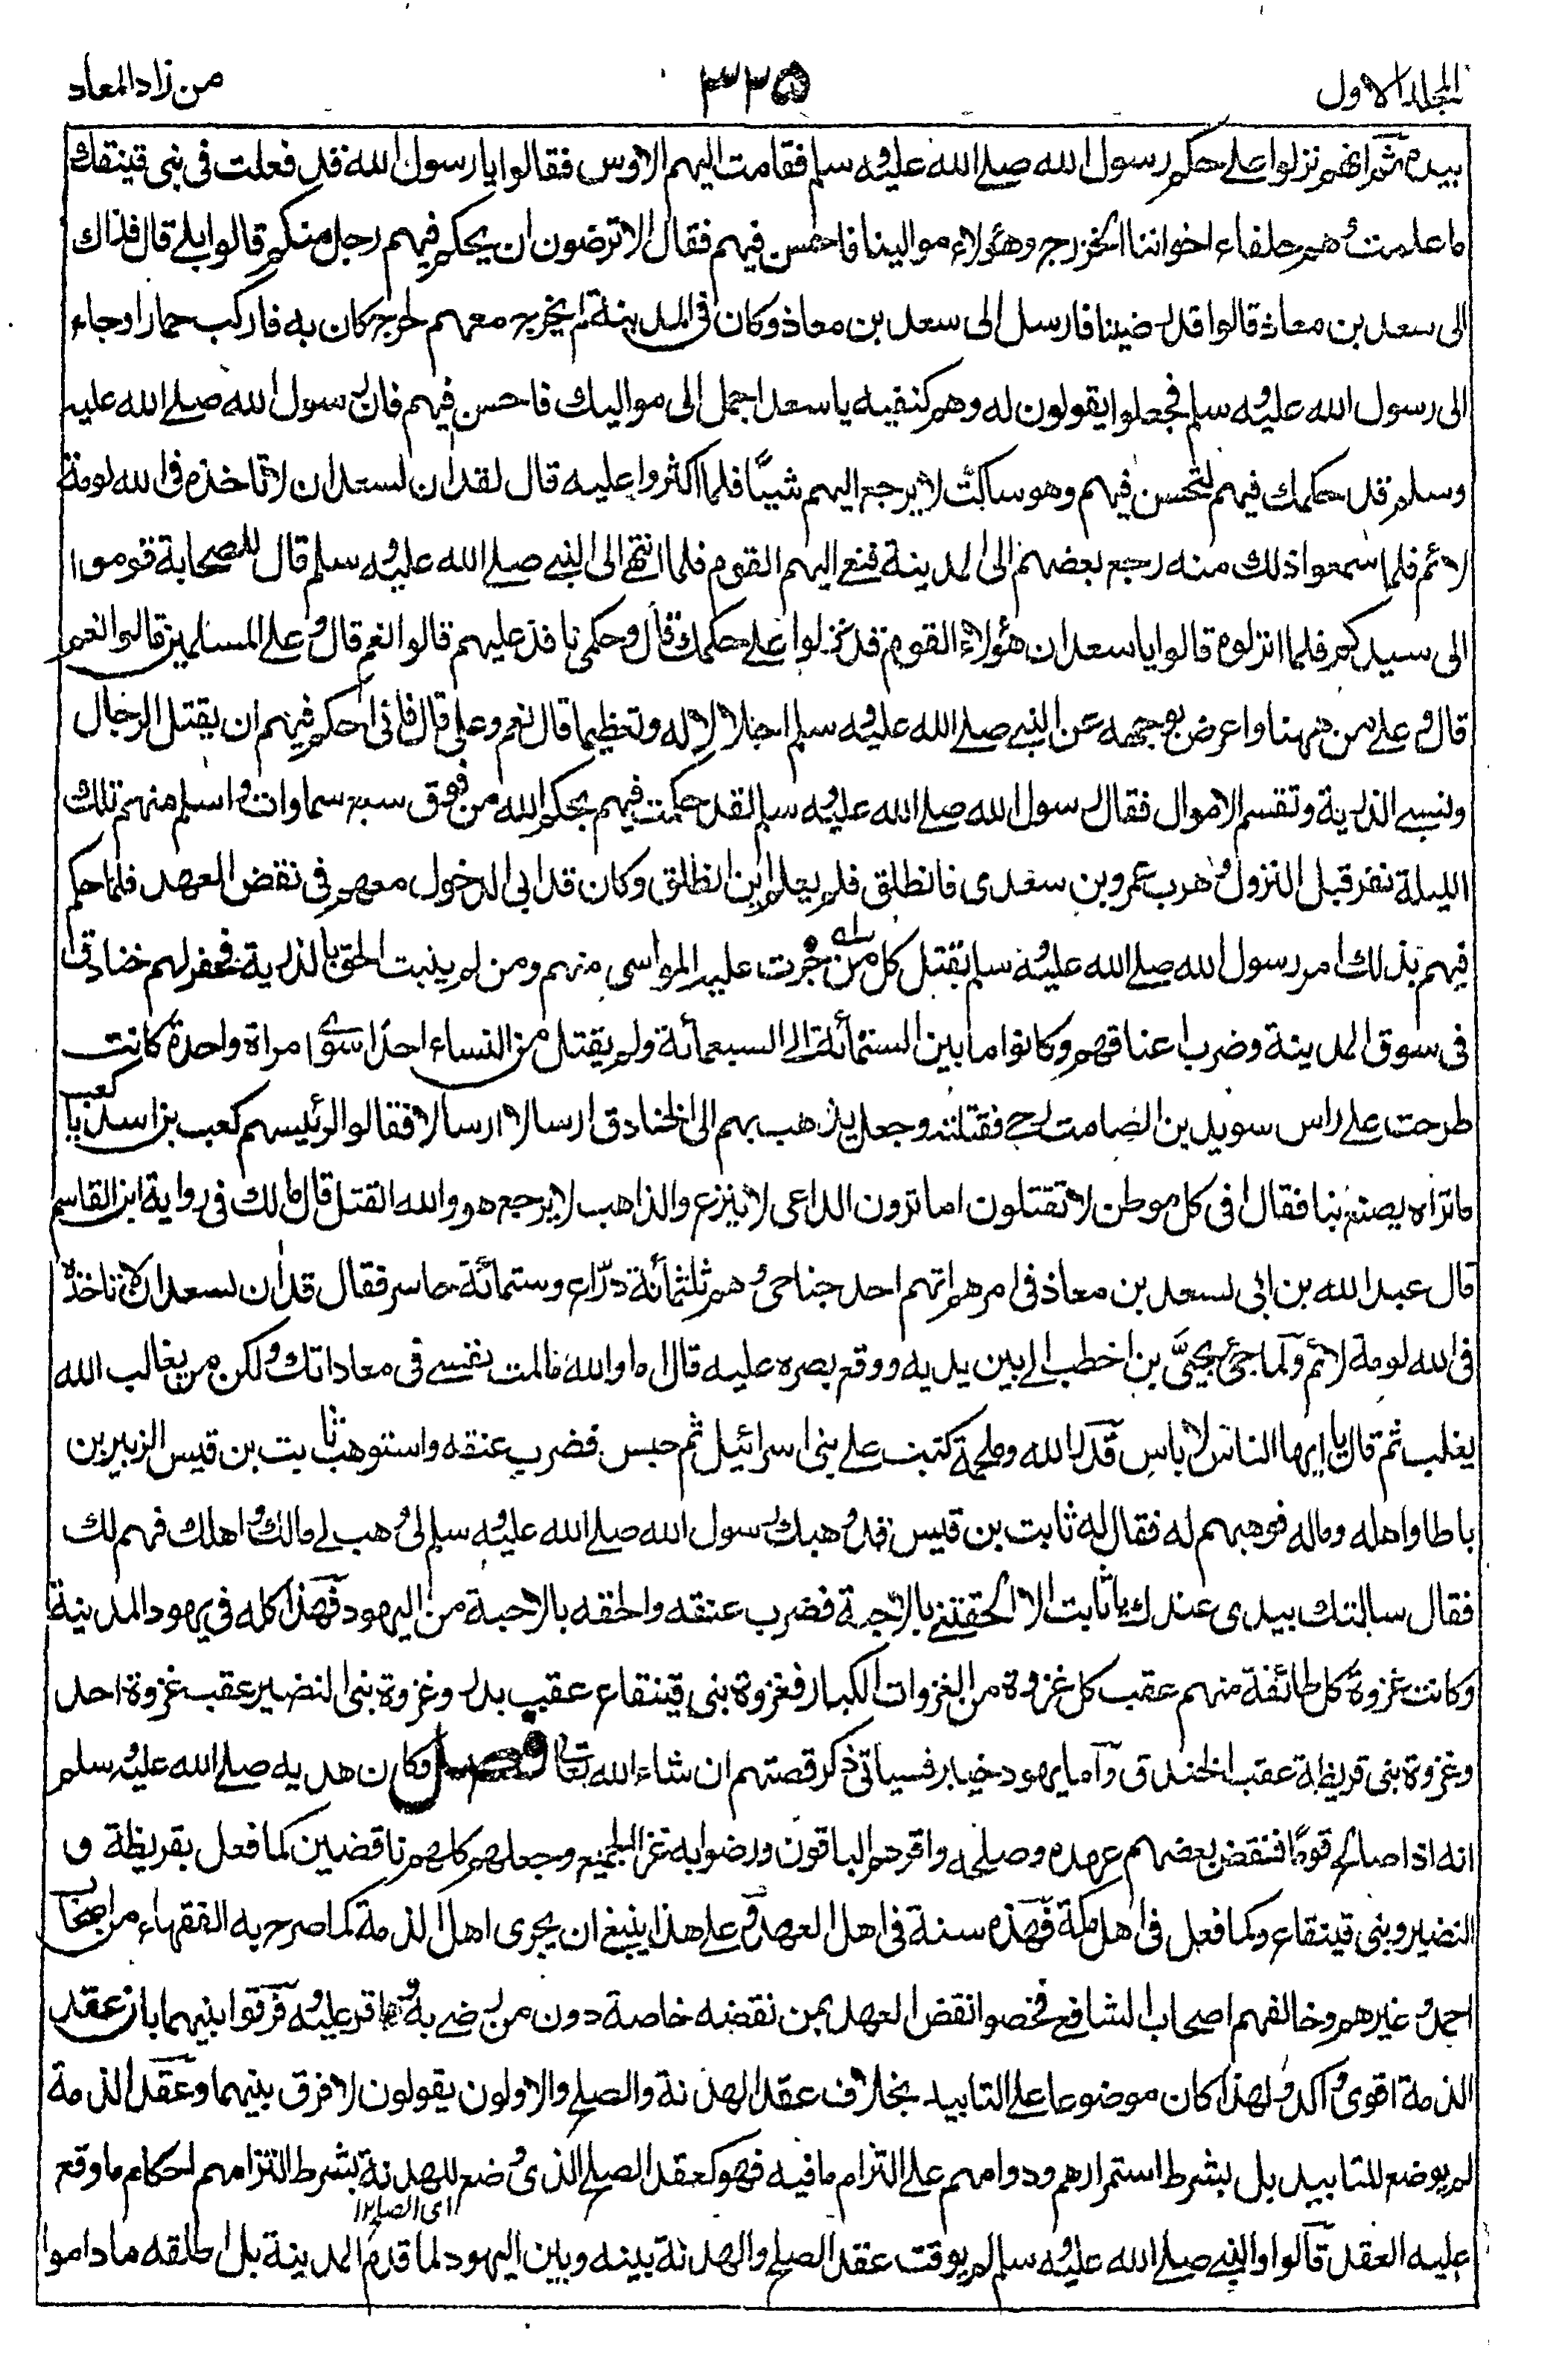 المجلد الاول
٣٣٥
من زاد المعاد
بيده ثم انهم نزلوا على حكم رسول الله صلى الله عليه وسلم فقامت اليهم الاوس فقالوا يا رسول الله قد فعلت فى بنى قينقاع
ما علمت وهم حلفاء اخواننا الخزرج وهؤلاء موالينا فاحسن فيهم فقال الا ترضون ان يحكم فيهم رجل منكم قالوا بلى قال فذاك
الى سعد بن معاذ قالوا قد رضينا فارسل الى سعد بن معاذ وكان فى المدينة لم يخرج معهم لجرح كان به فاركب حمارا وجاء
الى رسول الله عليه وسلم فجعلوا يقولون له وهم كنفيه يا سعد اجمل الى مواليك فاحسن فيهم فان رسول الله صلى الله عليه
وسلم قد حكمك فيهم لتحسن فيهم وهو ساكت لا يرجع اليهم شيئا فلما اكثروا عليه قال لقد ان لسعد ان لا تاخذه فى الله لومة
لائم فلما سمعوا ذلك منه رجع بعضهم الى المدينة فنعى اليهم القوم فلما انتهى الى النبى صلى الله عليه وسلم قال للصحابة قوموا
الى سيدكم فلما انزلوه قالوا يا سعد ان هؤلاء القوم قد نزلوا على حكمك قال وحكمى نافذ عليهم قالوا نعم قال وعلى المسلمين قالوا نعم
قال وعلى من ههنا واعرض بوجهه عن النبى صلى الله عليه وسلم اجلالا له وتعظيما قال نعم وعلى قال فانى احكم فيهم ان يقتل الرجال
وتسبى الذرية وتقسم الاموال فقال رسول الله صلى الله عليه وسلم لقد حكمت فيهم بحكم الله من فوق سبع سماوات واسلم منهم تلك
الليلة نفر قبل النزول وهرب عمرو بن سعدى فانطلق فلم يعلم اين انطلق وكان قد ابى الدخول معهم فى نقض العهد فلما حكم
فيهم بذلك امر رسول الله صلى الله عليه وسلم بقتل كل من جرت عليه المواسى منهم ومن لم ينبت الحق بالذرية فحفر لهم خنادق
فى سوق المدينة وضرب اعناقهم وكانوا ما بين الستمائة الى السبعمائة ولم يقتل من النساء احدا سوى امراة واحدة كانت
طرحت على راس سويد بن الصامت رحى فقتلته وجعل يذهب بهم الى الخنادق ارسالا ارسالا فقالوا لرئيسهم كعب بن اسد يا كعب
ما تراه يصنع بنا فقال افى كل موطن لا تقتلون اما ترون الداعى لا ينزع والذاهب لا يرجع هو والله القتل قال مالك فى رواية ابن القاسم
قال عبد الله بن ابى لسعد بن معاذ فى امرهم انهم احد جناحى وهم ثلثمائة درّاع وستمائة حاسر فقال قد ان لسعد ان لا تاخذه
فى الله لومة لائم ولما جئ بحيىّ بن اخطب الى بين يديه ووقع بصره عليه قال اما والله ما لمت نفسى فى معاداتك ولكن من يغالب الله
يغلب ثم قال يا ايها الناس لا باس قدر الله وملحمة كتبت على بنى اسرائيل ثم حبس فضرب عنقه واستوهب ثابت بن قيس الزبير بن
باطا واهله وماله فوهبهم له فقال له ثابت بن قيس قد وهبك رسول الله صلى الله عليه وسلم لى وهب لى مالك واهلك فهم لك
فقال سالتك بيدى عندك يا ثابت الا الحقتنى بالاحبة فضرب عنقه والحقه بالاحبة من اليهود فهذا كله فى يهود المدينة
وكانت غزوة كل طائفة منهم عقب كل غزوة من الغزوات الكبار فغزوة بنى قينقاع عقب بدر وغزوة بنى النضير عقب غزوة احد
وغزوة بنى قريظة عقب الخندق واما يهود خيبر فسياتى ذكر قصتهم ان شاء الله تعالى فصل وكان هديه صلى الله عليه وسلم
انه اذا صالح قوما فنقض بعضهم عهده وصلحه واقرهم الباقون ورضوا به غزا الجميع وجعلهم كلهم ناقضين كما فعل بقريظة و
النضير وبنى قينقاع وكما فعل فى اهل مكة فهذه سنة فى اهل العهد وعلى هذا ينبغى ان يجرى اهل الذمة كما صرح به الفقهاء من اصحاب
احمد وغيرهم وخالفهم اصحاب الشافعى فخصوا نقض العهد بمن نقضه خاصة دون من رضى به واقر عليه وفرقوا بينهما بان عقد
الذمة اقوى واكد ولهذا كان موضوعا على التابيد بخلاف عقد الهدنة والصلح والاولون يقولون لا فرق بينهما وعقد الذمة
لم يوضع للتابيد بل بشرط استمرارهم ودوامهم على التزام ما فيه فهو كعقد الصلح الذى وضع للهدنة بشرط التزامهم لحكام ما وقع
اى الصلح ١٢
عليه العقد قالوا والنبى صلى الله عليه وسلم لم يوقت عقد الصلح والهدنة بينه وبين اليهود لما قدم المدينة بل اطلقه ما داموا